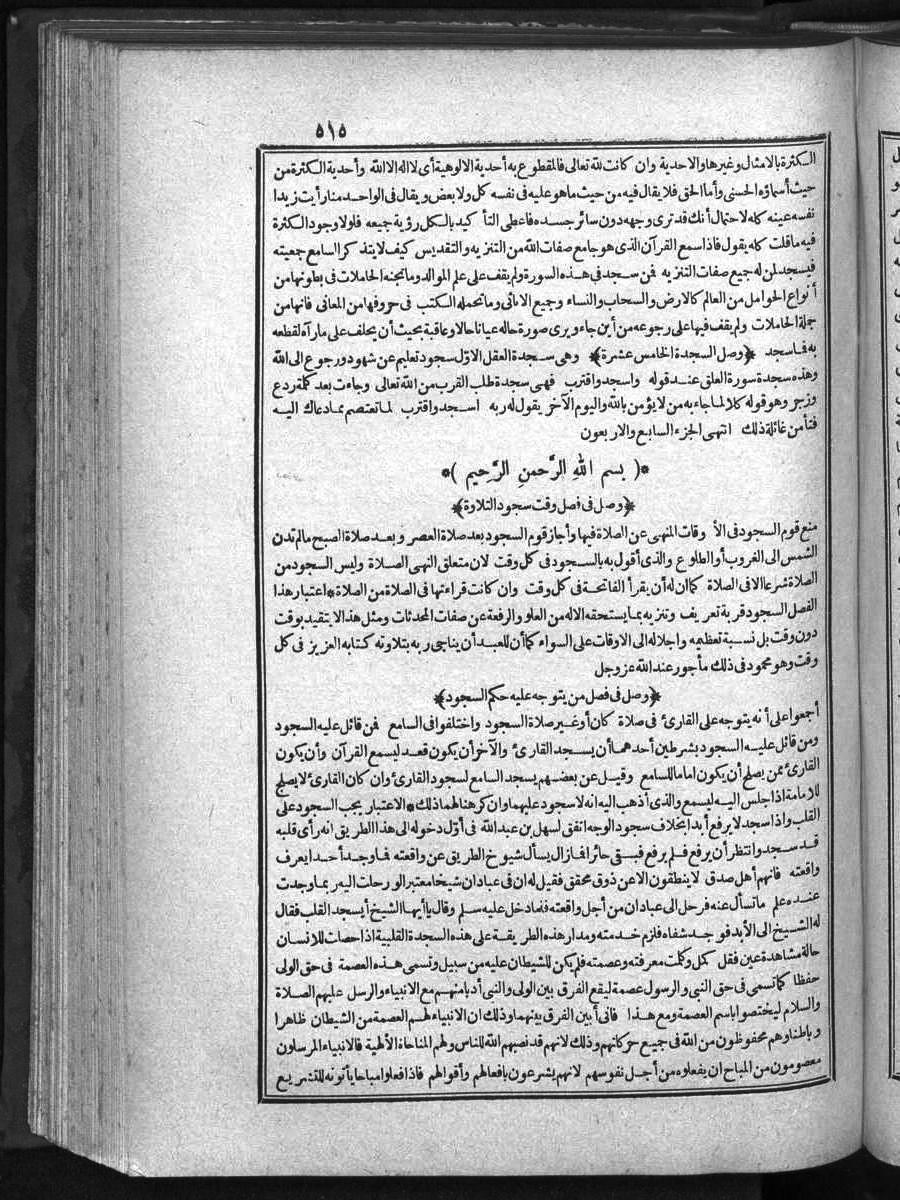 ٥١٥
الكثرة بالامثال وغيرها والاحدية وان كانت لله تعالى فالمقطوع به أحدية الالوهية أى لا اله الا الله وأحدية الكثرة من
حيث أسماؤه الحسنى وأما الحق فلا يقال فيه من حيث ما هو عليه فى نفسه كل ولا بعض ويقال فى الواحد منا رأيت زيدا
نفسه عينه كله لاحتمال أنك قد ترى وجهه دون سائر جسده فاعطى التأ كيد بالكل رؤية جميعه فلولا وجود الكثرة
فيه ما قلت كله يقول فاذا سمع القرآن الذى هو جامع صفات الله من التنزيه والتقديس كيف لا يتذ كر السامع جمعيته
فيسجد لمن له جميع صفات التنزيه فمن سجد فى هذه السورة ولم يقف على علم الموالد وما تجنه الحاملات فى بطونها من
أنواع الحوامل من العالم كالارض والسحاب والنساء وجميع الاماثى وما تحمله الكتب فى حروفها من المعانى فانها من
جملة الحاملات ولم يقف فيها على رجوعه من أين جاء ويرى صورة حاله عيانا حالا وعاقبة بحيث أن يحلف على ما رآه لقطعه
به فما سجد ﴿وصل السجدة الخامس عشرة﴾ وهى سجدة العقل الاول سجود تعليم عن شهود ورجوع الى الله
وهذه سجدة سورة العلق عند قوله واسجد واقترب فهى سجدة طلب القرب من الله تعالى وجاءت بعد كلمة ردع
وزجر وهو قوله كلا لما جاء به من لا يؤمن بالله واليوم الآخر يقول له ربه اسجد واقترب لما تعتصم بما دعاك اليه
فتأمن غائلة ذلك انتهى الجزء السابع والاربعون
*( بسم الله الرَّحمنِ الرَّحِيم )*
﴿وصل فى فصل وقت سجود التلاوة﴾
منع قوم السجود فى الأ وقات المنهى عن الصلاة فيها وأجاز قوم السجود بعد صلاة العصر وبعد صلاة الصبح مالم تدن
الشمس الى الغروب أو الطلوع والذى أقول به بالسجود فى كل وقت لان متعلق النهى الصلاة وليس السجود من
الصلاة شرعا الا فى الصلاة كما ان له أن يقرأ الفاتحة فى كل وقت وان كانت قراءتها فى الصلاة من الصلاة * اعتبار هذا
الفصل السجود قربة تعريف وتنزيه بما يستحقه الاله من العلو والرفعة عن صفات المحدثات ومثل هذا لا يتقيد بوقت
دون وقت بل نسبة تعظيمه واجلاله الى الاوقات على السواء كما أن للعبد أن يناجى ربه بتلاوته كتابه العزيز فى كل
وقت وهو محمود فى ذلك مأجور عند الله عز وجل
﴿وصل فى فصل من يتوجه عليه حكم السجود﴾
أجمعوا على أنه يتوجه على القارئ فى صلاة كان أو غير صلاة السجود واختلفوا فى السامع فمن قائل عليه السجود
ومن قائل عليه السجود بشرطين أحدهما أن يسجد القارئ والآخر أن يكون قعد ليسمع القرآن وأن يكون
القارئ ممن يصلح أن يكون اماما للسامع وقيل عن بعضهم يسجد السامع لسجود القارئ وان كان القارئ لا يصلح
للامامة اذا جلس اليه ليسمع والذى أذهب اليه انه لا سجود عليهما وان كرهنا لهما ذلك * الاعتبار يجب السجود على
القلب واذا سجد لا يرفع أبدا بخلاف سجود الوجه اتفق لسهل بن عبد الله فى أول دخوله الى هذا الطريق انه رأى قلبه
قد سجد وانتظر أن يرفع فلم يرفع فبقى حائرا فما زال يسأل شيوخ الطريق عن واقعته فما وجد أحدا يعرف
واقعته فانهم أهل صدق لا ينطقون الا عن ذوق محقق فقيل له ان فى عبادان شيخا معتبرا لو رحلت اليه ربما وجدت
عنده علم ما تسأل عنه فرحل الى عبادان من أجل واقعته فلما دخل عليه سلم وقال يا أيها الشيخ أيسجد القلب فقال
له الشيخ الى الأبد فوجد شفاه فلزم خدمته ومدار هذه الطريقة على هذه السجدة القلبية اذا حصلت للانسان
حالة مشاهدة عين فقل كمل وكملت معرفته وعصمته فلم يكن للشيطان عليه من سبيل وتسمى هذه العصمة فى حق الولى
حفظا كما تسمى فى حق النبى والرسول عصمة ليقع الفرق بين الولى والنبى أدبا منهم مع الانبياء والرسل عليهم الصلاة
والسلام ليختصوا باسم العصمة ومع هذا فانى أبين الفرق بينهما وذلك ان الانبياء لهم العصمة من الشيطان ظاهرا
وباطنا وهم محفوظون من الله فى جميع حركاتهم وذلك لانهم قد نصبهم الله للناس ولهم المناجاة الالهية فالانبياء المرسلون
معصومون من المباح ان يفعلوه من أجل نفوسهم لانهم يشرعون بافعالهم وأقوالهم فاذا فعلوا مباحا يأتونه للتشريع